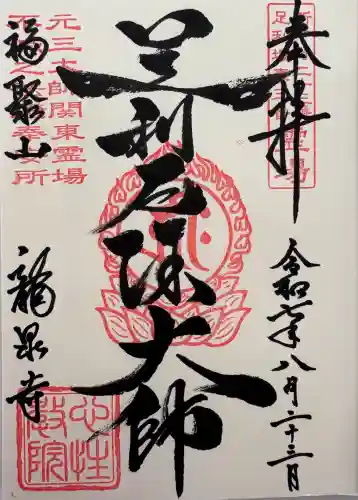 奉拝
令和七年八月二十三日
足利厄除大師
福聚山
龍泉寺
元三大師関東霊場
心性教院